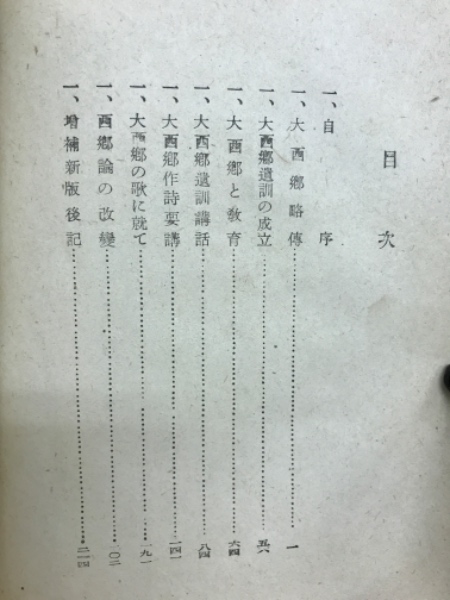 目次
一、自序
一、大西郷略傳 一
一、大西郷遺訓の成立 五六
一、大西郷と敎育 六四
一、大西郷遺訓講話 八四
一、大西郷作詩要講 一四一
一、大西郷の歌に就て 一九一
一、西郷論の改變 二〇二
一、増補新版後記 二一四